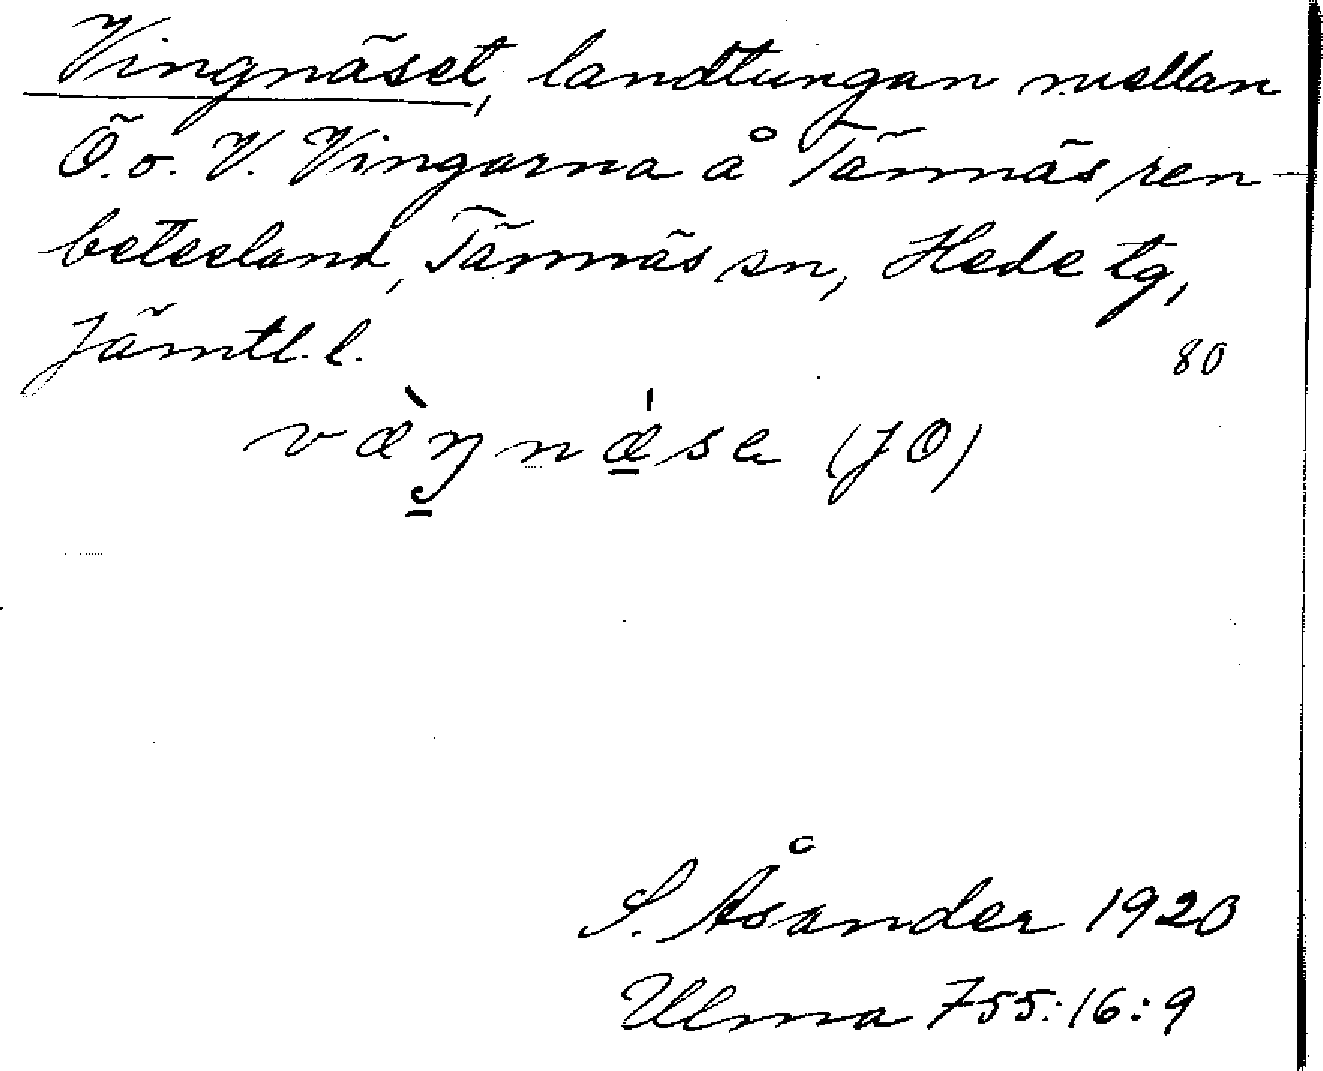 Vingnäset, landtungan mellan
Ö. o. V. Vingarna å Tännäs ren-
betesland, Tännäs sn, Hede tg,
Jämtl. l.
80
væ̀ŋnǽsa (JO)
S. Åsander 1920
Ulma 755:16:9